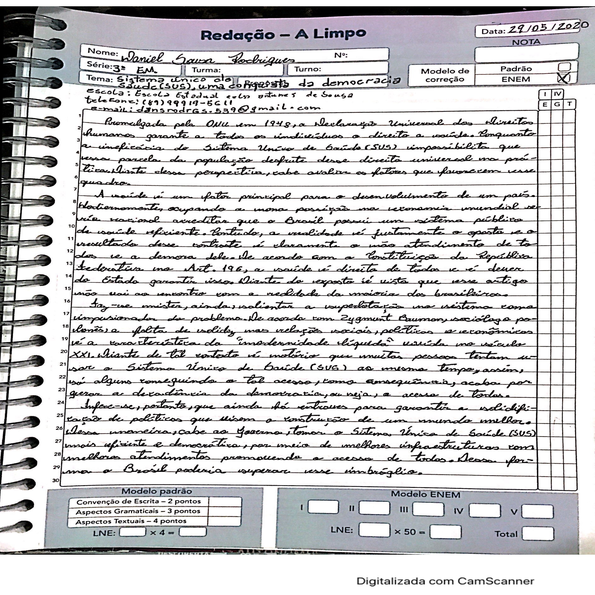 Redação – A Limpo
Data: 29/05/2020
NOTA
Nome: Daniel Sousa Rodrigues Nº:
Série: 3º EM Turma: Turno:
Modelo de correção
Padrão
ENEM X
Tema: Sistema único de
Saúde (SUS), uma conquista da democracia
Escola: Escola Estadual
telefone: (89) 99919-5611
I IV
E G T
Promulgada pela ONU em 1948, a Declaração Universal dos Direitos
Humanos garante a todos os indivíduos o direito a saúde. Enquanto
a ineficácia do Sistema Único de Saúde (SUS) impossibilita que
essa parcela da população desfrute desse direito universal na prá-
tica. Diante dessa perspectiva, cabe avaliar os fatores que favorecem esse
quadro.
A saúde é um fator principal para o desenvolvimento de um país.
Hodiernamente, ocupando a nona posição na economia mundial se-
ria racional acreditar que o Brasil possui um sistema público
de saúde eficiente. Contudo, a realidade é justamente o oposto e o
resultado desse contraste é claramente o não atendimento de to-
dos e a demora dele. De acordo com a Constituição da República
Federativa no Art. 196, a saúde é direito de todos e é dever
do Estado garantir isso. Diante do exposto é visto que esse artigo
não vai ao encontro com a realidade da maioria dos brasileiros.
Faz-se mister, ainda, salientar a superlotação no sistema como
impulsionador do problema. De acordo com Zygmunt Bauman, sociólogo po-
lonês, a falta de solidez nas relações sociais, políticas e econômicas
é a característica da "modernidade líquida" vivida no século
XXI. Diante de tal contexto é notório que muitas pessoas tentam u-
sar o Sistema Único de Saúde (SUS) ao mesmo tempo, assim,
só alguns conseguindo o tal acesso, como consequência, acaba por
gerar a decadência da democracia, ou seja, o acesso de todos.
Infere-se, portanto, que ainda há entraves para garantir a solidifi-
cação de políticas que visem a construção de um mundo melhor.
Dessa maneira, cabe ao Governo, tornar o Sistema Único de Saúde (SUS)
mais eficiente e democrático, por meio de melhores infraestruturas com
melhores atendimentos promovendo o acesso de todos. Dessa for-
ma o Brasil poderia superar esse imbróglio.
Modelo padrão
Convenção de Escrita – 2 pontos
Aspectos Gramaticais – 3 pontos
Aspectos Textuais – 4 pontos
LNE: × 4 =
Modelo ENEM
I II III IV V
LNE: × 50 = Total
Digitalizada com CamScanner